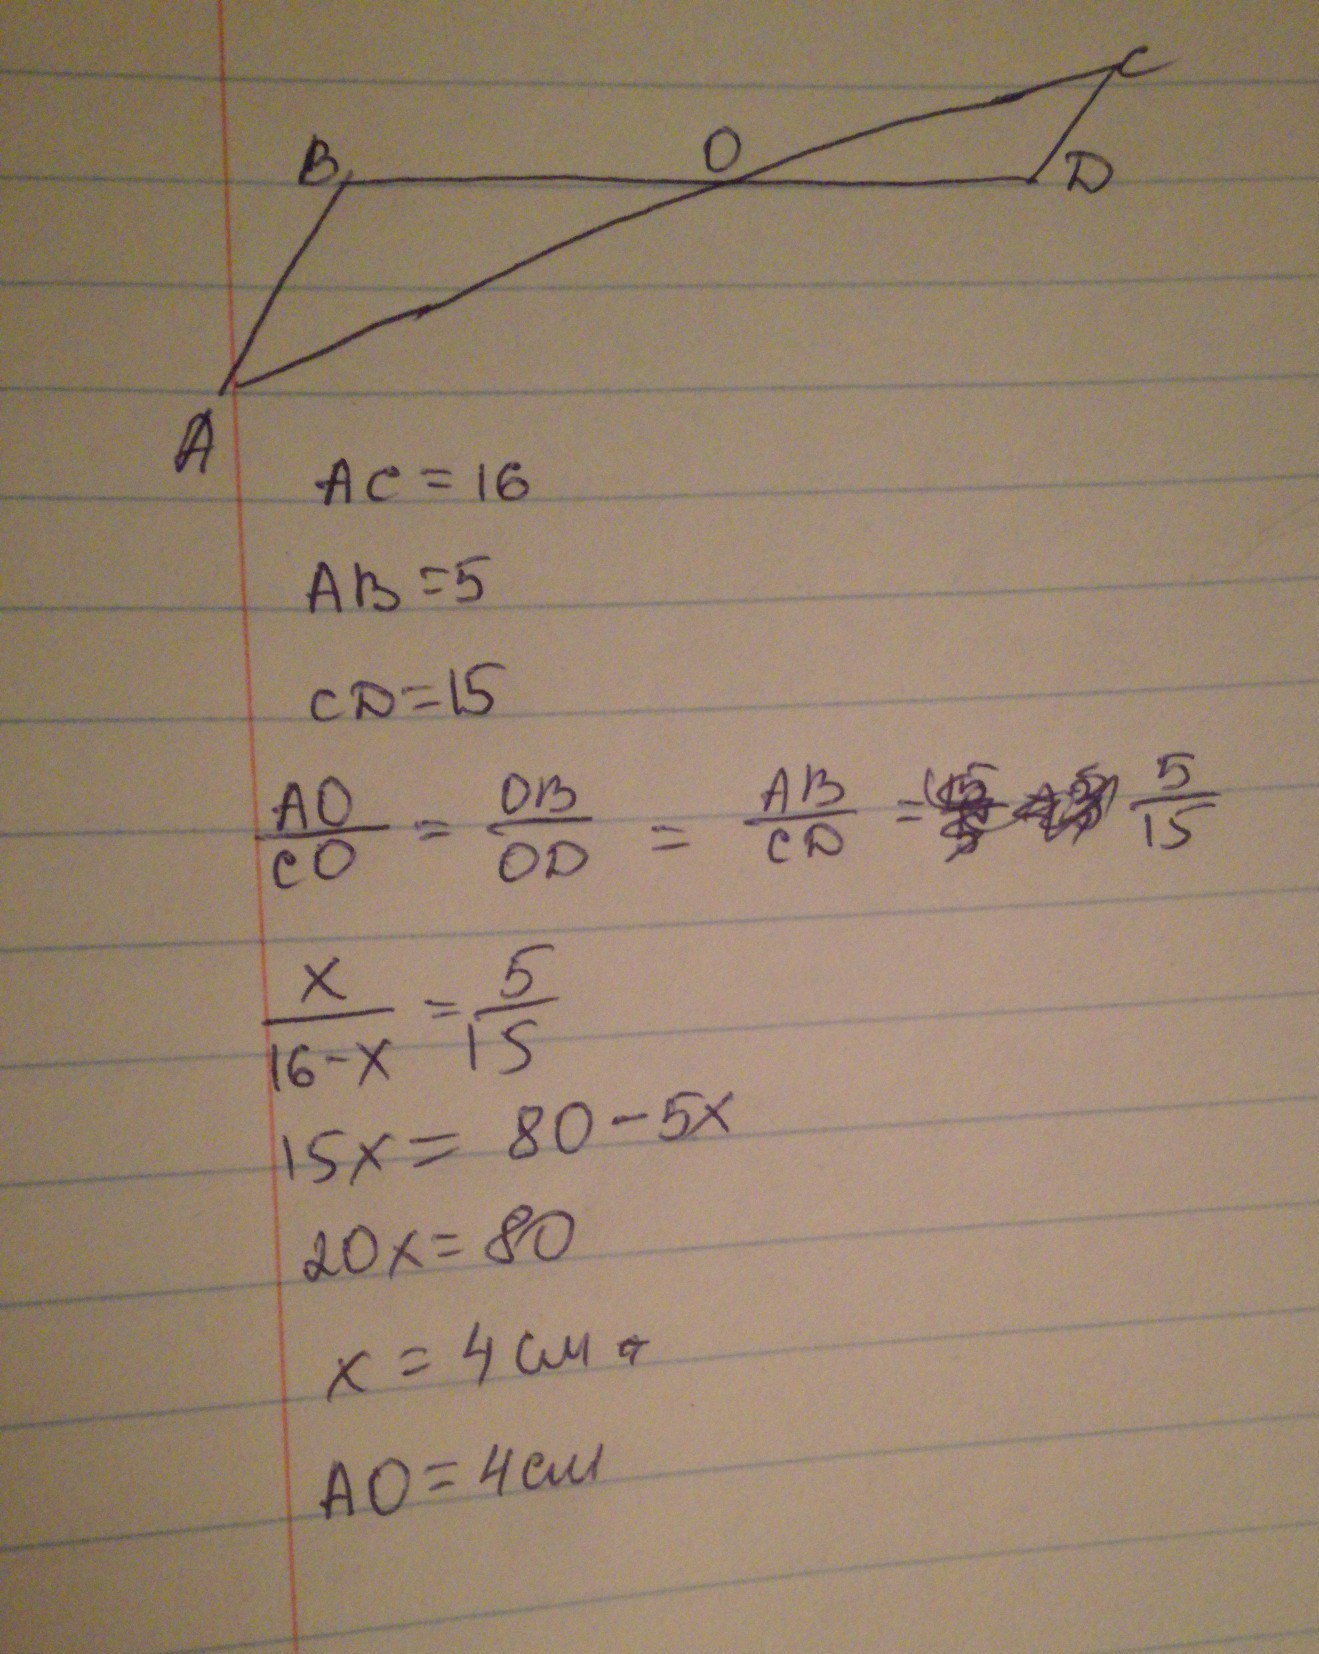 C
B O D
A
AC = 16
AB = 5
CD = 15
AO/CO = OB/OD = AB/CD = 5/15
x/(16-x) = 5/15
15x = 80 - 5x
20x = 80
x = 4 см
AO = 4 см